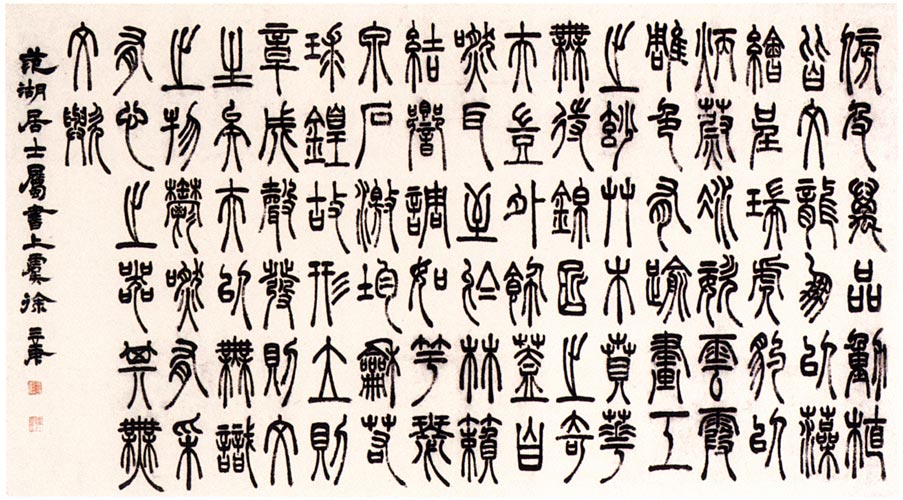 傍及萬品動植
皆文龍鳳以藻
繪呈瑞虎豹以
炳蔚凝姿雲霞
雕色有踰畫工
之妙草木賁華
無待錦匠之奇
夫豈外飾蓋自
然耳至於林籟
結響調如竽瑟
泉石激均龢若
球鍠故形立則
章成聲發則文
生矣夫以無識
之物鬱然有采
有心之器其無
文歟
范湖居士屬書上虞徐三庚